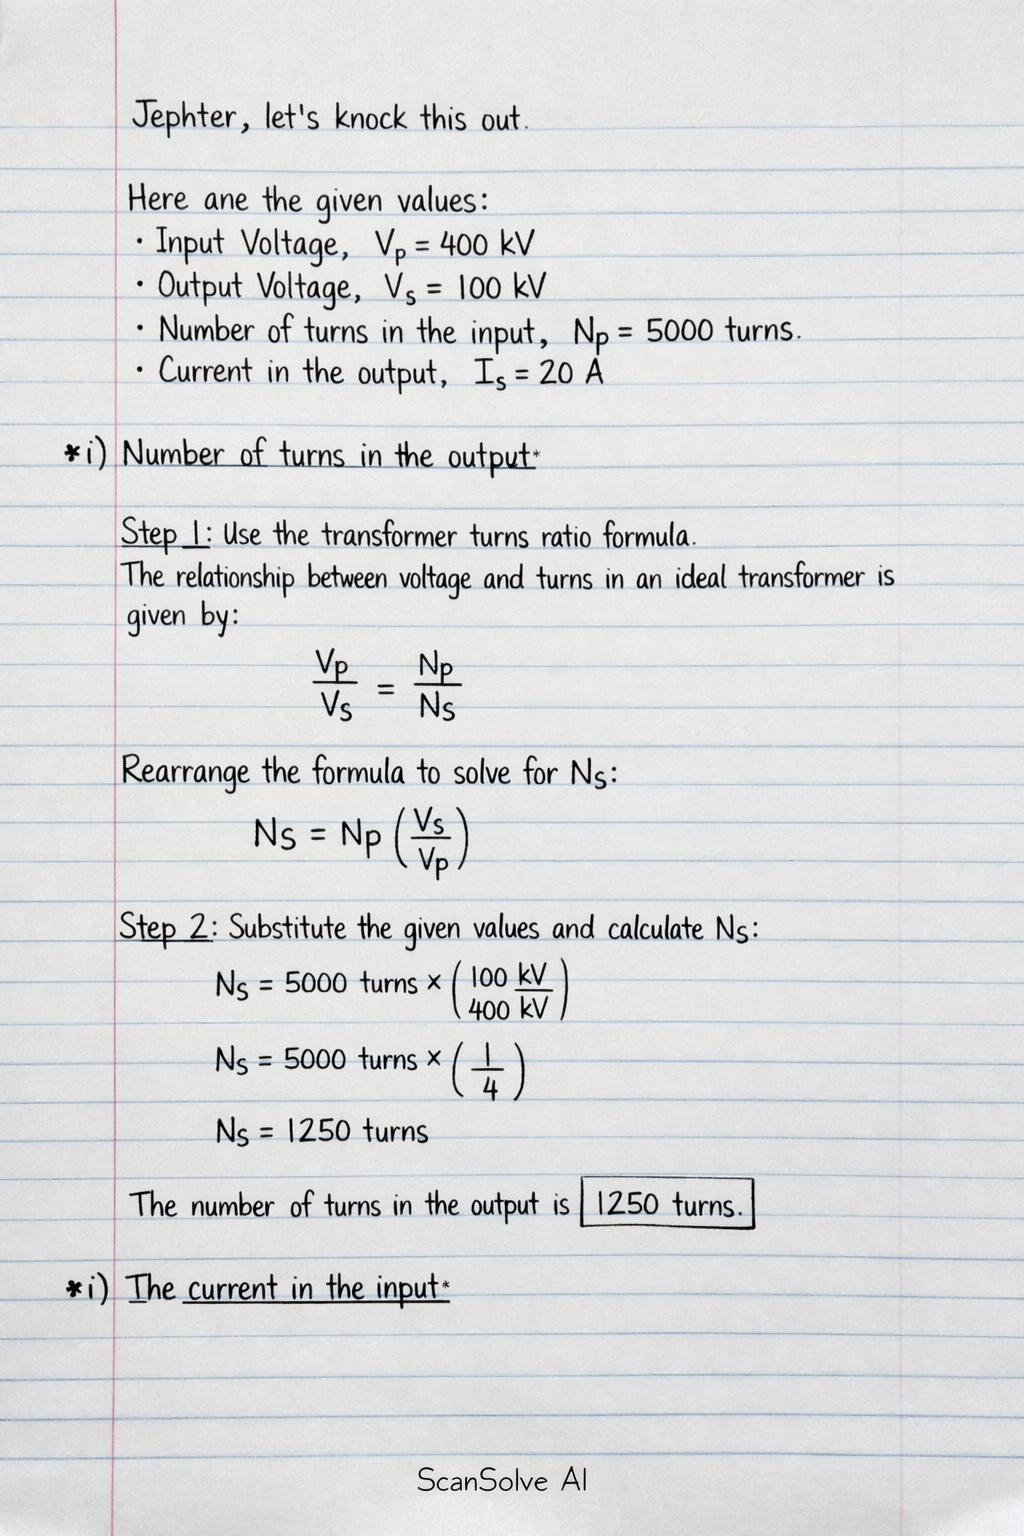 Jephter, let's knock this out.
Here ane the given values:
· Input Voltage, Vp = 400 kV
· Output Voltage, Vs = 100 kV
· Number of turns in the input, Np = 5000 turns.
· Current in the output, Is = 20 A
*i) Number of turns in the output*
Step 1: Use the transformer turns ratio formula.
The relationship between voltage and turns in an ideal transformer is
given by:
Vp/Vs = Np/Ns
Rearrange the formula to solve for Ns:
Ns = Np (Vs/Vp)
Step 2: Substitute the given values and calculate Ns:
Ns = 5000 turns × (100 kV/400 kV)
Ns = 5000 turns × (1/4)
Ns = 1250 turns
The number of turns in the output is 1250 turns.
*i) The current in the input*
ScanSolve AI